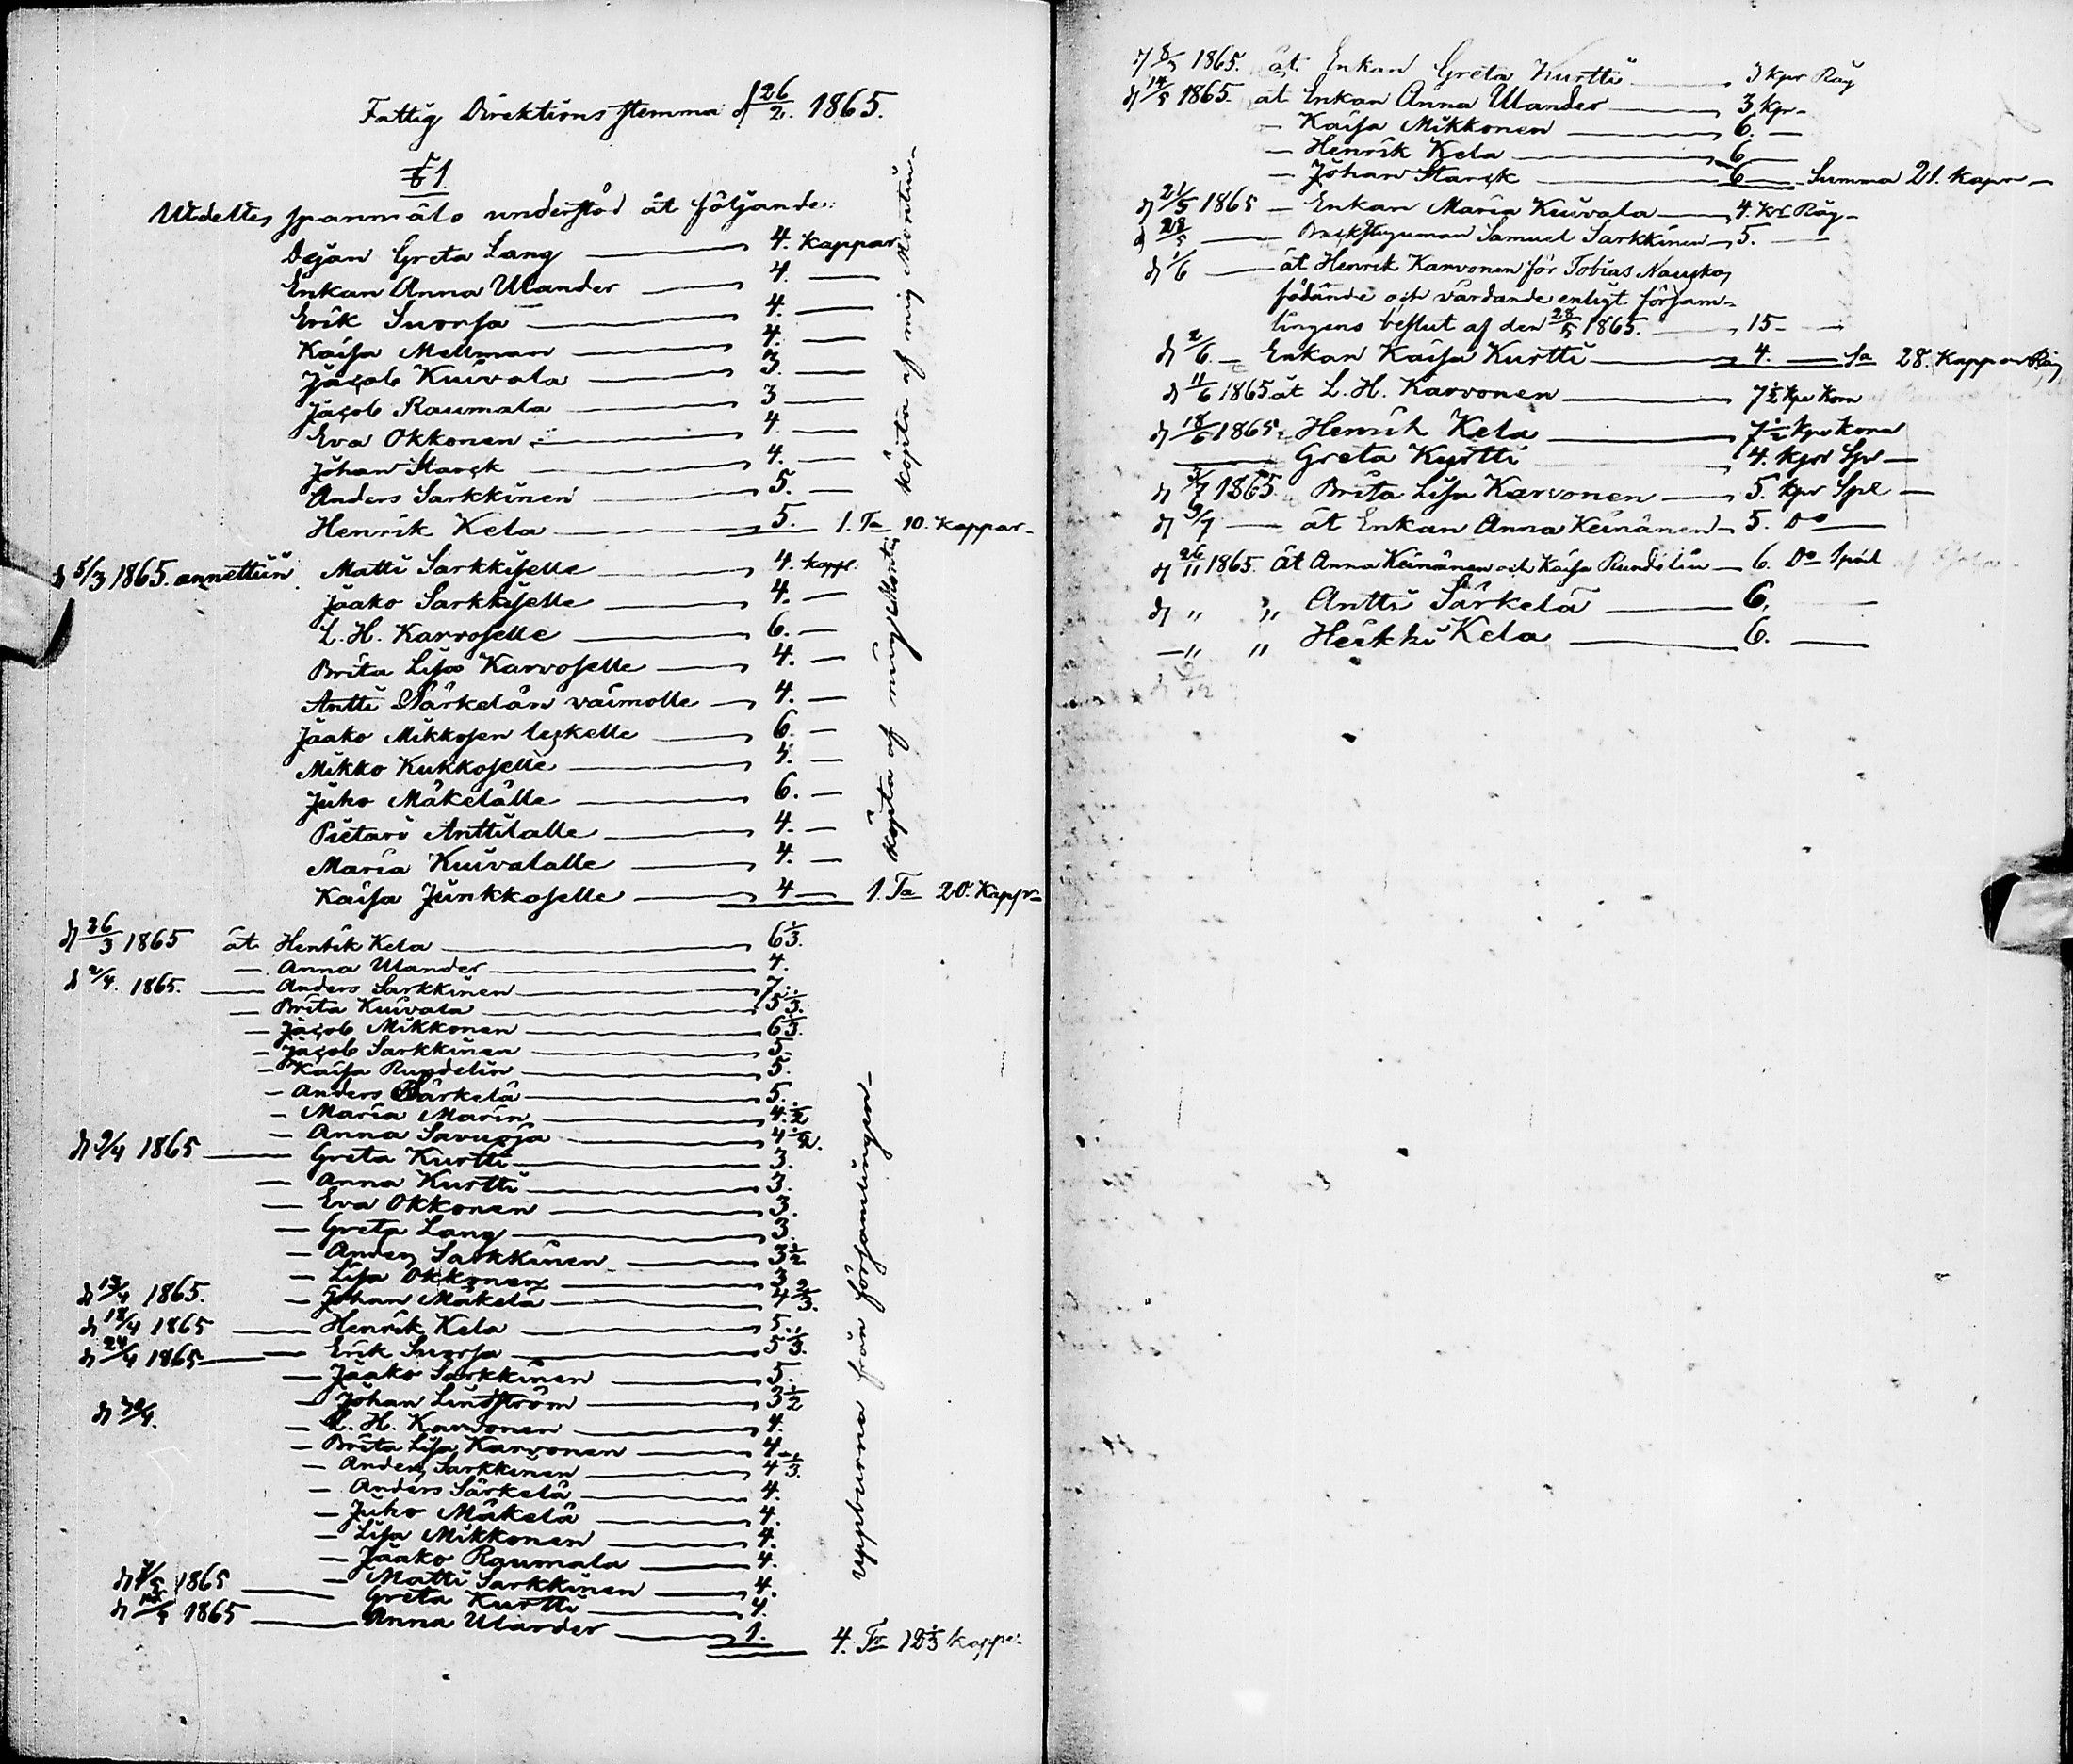 Fattig Direktions stemma d 26/2. 1865.
§ 1.
Utdeltes spanmåls understöd åt följande:
Pigan Greta Lang — 4. kappar
Enkan Anna Ulander — 4. —
Erik Suorsa — 4. —
Kaisa Mellman — 4. —
Jacob Kuivala — 3. —
Jacob Raumala — 3 —
Eva Okkonen — 4. —
Johan Starck — 4. —
Anders Sarkkinen — 5. —
Henrik Kela — 5. 1. Ta 10. Kappar —
köpta af mig Montin —
d 5/3 1865 annettiin Matti Sarkkiselle — 4. kapp.
Jaako Sarkkiselle — 4. —
L. H. Karvoselle — 6. —
Brita Lisa Karvoselle — 4. —
Antti Särkelän vaimolle — 4. —
Jaako Mikkosen leskelle — 6. —
Mikko Kukkoselle — 4. —
Juho Mäkelälle — 6. —
Pietari Anttilalle — 4. —
Maria Kuivalalle — 4. —
Kaisa Junkkoselle — 4 — 1. Ta 20. Kappr —
köpta af mig Montin
d 26/3 1865 åt Henrik Kela — 6 1/3.
— Anna Ulander — 4.
d 2/4. 1865. — Anders Sarkkinen — 7.
— Brita Kuivala — 5 1/3.
— Jacob Mikkonen — 6 1/3.
— Jacob Sarkkinen — 5.
— Kaisa Rundelin — 5.
— Anders Särkelä — 5.
— Maria Marin — 4. 1/2
— Anna Savuoja — 4 1/2.
d 9/4 1865 — Greta Kurtti — 3.
— Anna Kurtti — 3.
— Eva Okkonen — 3.
— Greta Lang — 3.
— Anders Sarkkinen — 3 1/2
— Lisa Okkonen — 3
d 13/4 1865. — Johan Mäkelä — 4 2/3.
d 18/4 1865 — Henrik Kela — 5.
d 24/4 1865 — Erik Suorsa — 5 1/3.
— Jaako Sarkkinen — 5.
— Johan Lindström — 3 1/2
d 30/4. — L. H. Karvonen — 4.
— Brita Lisa Karvonen — 4
— Anders Sarkkinen — 4 1/3.
— Anders Särkelä — 4.
— Juho Mäkelä — 4.
— Lisa Mikkonen — 4.
— Jaako Raumala — 4.
— Matti Sarkkinen — 4.
d 7/5 1865 — Greta Kurtti — 4.
d 14/5 1865 — Anna Ulander — 1. 4. Tr 12 1/3 kappr.
uppburna från församlingen —
d 8/5 1865. åt Enkan Greta Kurtti — 3 kpr Råg
d 14/5 1865. åt Enkan Anna Ulander — 3 kpr —
— Kaisa Mikkonen — 6. —
— Henrik Kela — 6 —
— Johan Starck — 6 — Summa 21. kapr —
d 21/5 1865 — Enkan Maria Kuivala — 4. kpr Råg —
d 28/5 — Backstuguman Samuel Sarkkinen — 5. —
d 1/6 — åt Henrik Karvonen för Tobias
födande och vårdande enligt försam-
lingens beslut af den 28/5 1865. — 15 — —
d 2/6. — Enkan Kaisa Kurtti — 4. — Sa 28. Kappar Råg
d 11/6 1865 åt L. H. Karvonen — 7 1/2 kpr Korn
d 18/6 1865 Henrik Kela — 7 1/2 kpr korn
— Greta Kurtti — 4. kpr Spl —
d 3/7 1865. Brita Lisa Karvonen — 5. kpr Spl —
d 9/7 — åt Enkan Anna Keinänen — 5. Do —
d 26/11 1865. åt Anna Keinänen och Kaisa Rundelin — 6. Do Spål
d " " Antti Särkelä — 6. —
— " " Heikki Kela — 6. —